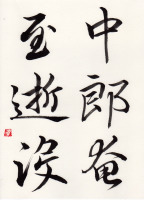 中郎奄
至逝没